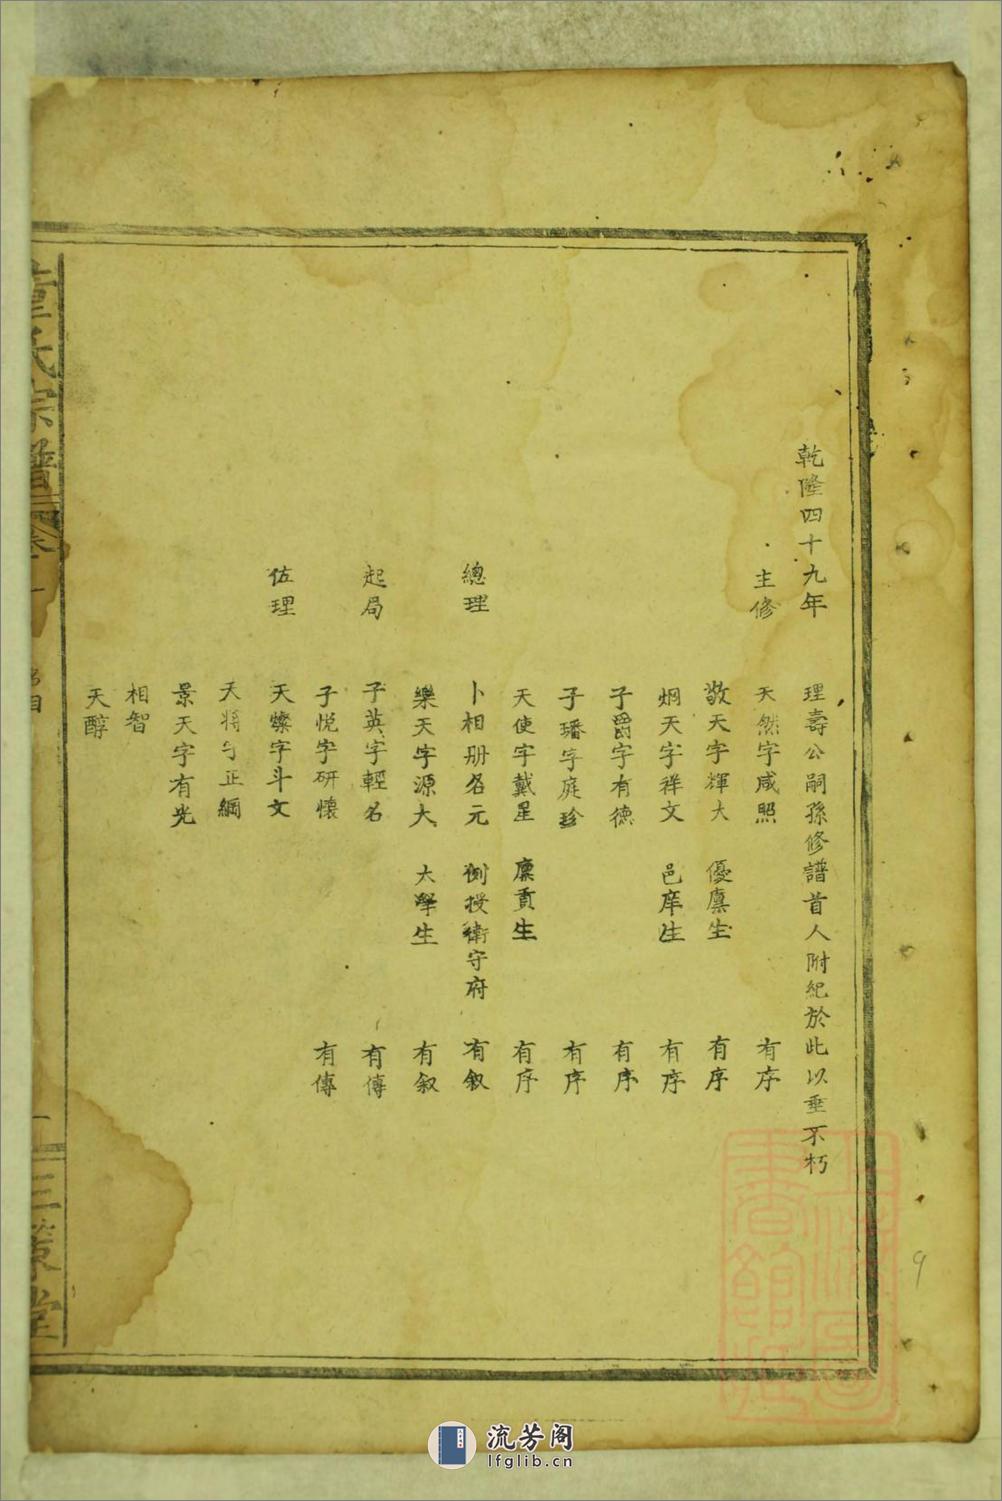 乾隆四十九年
理壽公嗣孫修譜首人附紀於此以垂不朽
主修
天然字咸照 有序
敬天字輝大 優廩生 有序
炯天字祥文 邑庠生 有序
子爵字有德 有序
子璠字庭珍 有序
天使字戴星 廩貢生 有序
總理
卜相册名元 例授衛守府 有叙
樂天字源大 大學生 有叙
起局
子英字輕名 有傳
子悦字研懷 有傳
佐理
天燦字斗文
天將字正綱
景天字有光
相智
天醇
董氏宗譜 卷一
三策堂
9
流芳阁
lfglib.cn